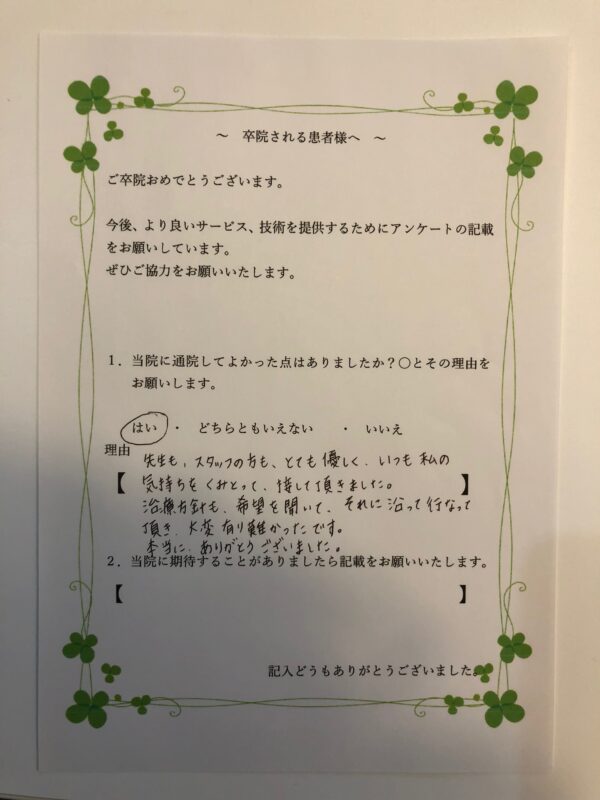 ～ 卒院される患者様へ ～
ご卒院おめでとうございます。
今後、より良いサービス、技術を提供するためにアンケートの記載
をお願いしています。
ぜひご協力をお願いいたします。
１．当院に通院してよかった点はありましたか？〇とその理由を
お願いします。
はい ・ どちらともいえない ・ いいえ
理由
先生も、スタッフの方も、とても優しく、いつも私の
【 気持ちをくみとって、接して頂きました。 】
治療方針も、希望を聞いて、それに沿って行なって
頂き、大変有り難かったです。
本当に、ありがとうございました。
２．当院に期待することがありましたら記載をお願いいたします。
【 】
記入どうもありがとうございました。